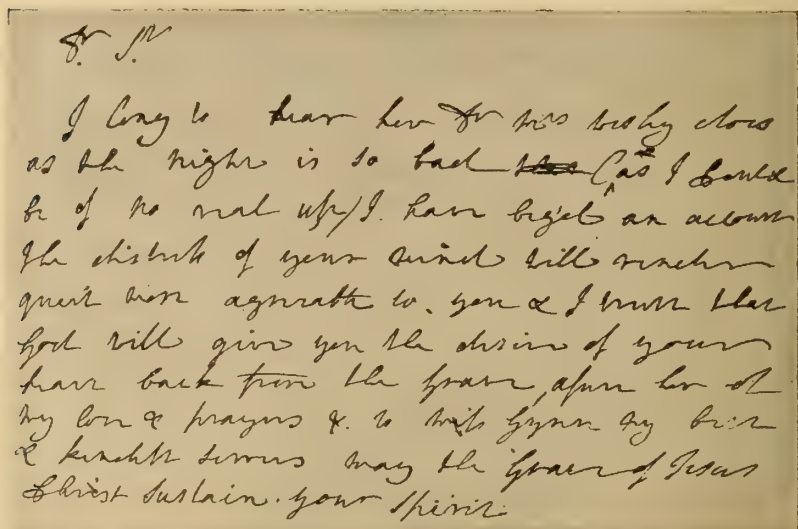 Dr Sr
I long to hear how Dr Mrs Wesley does
as the night is so bad (as I could
be of no real use) I have beg'd an account
the distress of your mind will render
quiet more agreeable to you & I trust that
God will give you the desire of your
heart back from the Grave, assure her of
my love & prayers & to Miss Gwynn my best
& kindest services may the Grace of Jesus
Christ sustain your spirit